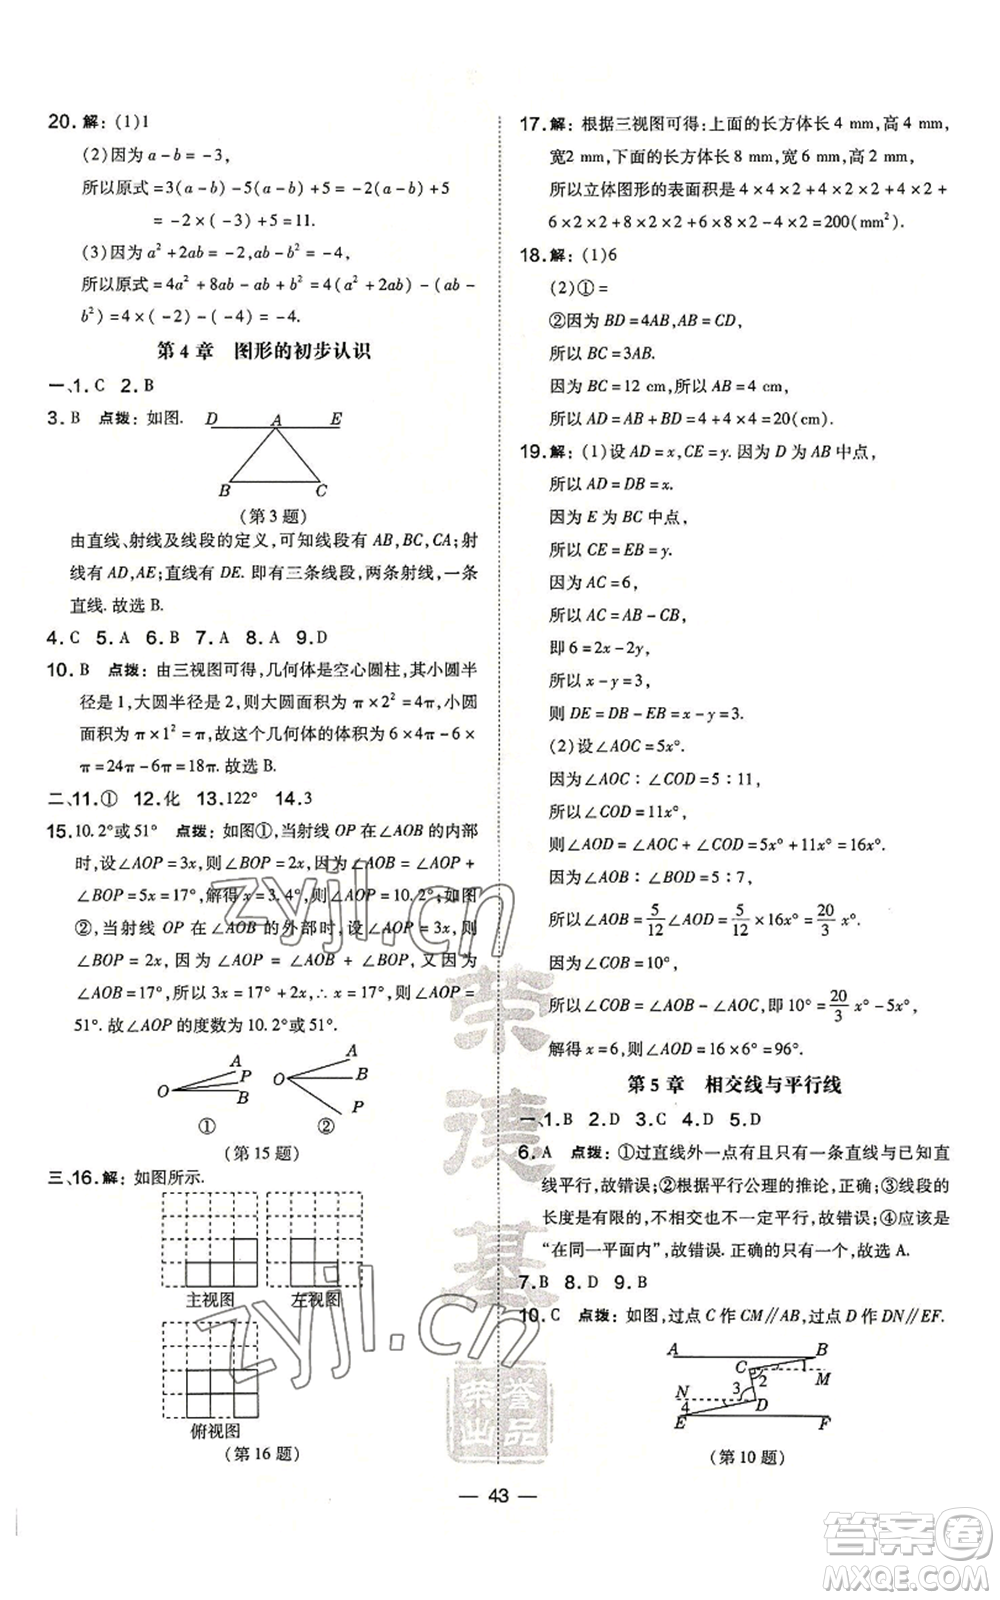 20. 解：(1)1
(2)因为 a－b＝－3，
所以原式＝3(a－b)－5(a－b)＋5＝－2(a－b)＋5
＝－2×(－3)＋5＝11.
(3)因为 a²＋2ab＝－2，ab－b²＝－4，
所以原式＝4a²＋8ab－ab＋b²＝4(a²＋2ab)－(ab－
b²)＝4×(－2)－(－4)＝－4.
第 4 章　图形的初步认识
一、1. C　2. B
3. B　点拨：如图.
D A E
B C
(第 3 题)
由直线、射线及线段的定义，可知线段有 AB，BC，CA；射
线有 AD，AE；直线有 DE. 即有三条线段，两条射线，一条
直线. 故选 B.
4. C　5. A　6. B　7. A　8. A　9. D
10. B　点拨：由三视图可得，几何体是空心圆柱，其小圆半
径是 1，大圆半径是 2，则大圆面积为 π×2²＝4π，小圆
面积为 π×1²＝π，故这个几何体的体积为 6×4π－6×
π＝24π－6π＝18π. 故选 B.
二、11. ①　12. 化　13. 122°　14. 3
15. 10.2°或 51°　点拨：如图①，当射线 OP 在∠AOB 的内部
时，设∠AOP＝3x，则∠BOP＝2x，所以∠AOB＝∠AOP＋
∠BOP＝5x＝17°，解得 x＝3.4°，则∠AOP＝10.2°；如图
②，当射线 OP 在∠AOB 的外部时，设∠AOP＝3x，则
∠BOP＝2x，因为∠AOP＝∠AOB＋∠BOP，又因为
∠AOB＝17°，所以 3x＝17°＋2x，∴x＝17°，则∠AOP＝
51°. 故∠AOP 的度数为 10.2°或 51°.
O A P B ①
O A B P ②
(第 15 题)
三、16. 解：如图所示.
主视图　左视图
俯视图
(第 16 题)
17. 解：根据三视图可得：上面的长方体长 4 mm，高 4 mm，
宽2 mm，下面的长方体长 8 mm，宽 6 mm，高 2 mm，
所以立体图形的表面积是 4×4×2＋4×2×2＋4×2＋
6×2×2＋8×2×2＋6×8×2－4×2＝200(mm²).
18. 解：(1)6
(2)①＝
②因为 BD＝4AB，AB＝CD，
所以 BC＝3AB.
因为 BC＝12 cm，所以 AB＝4 cm，
所以 AD＝AB＋BD＝4＋4×4＝20(cm).
19. 解：(1)设 AD＝x，CE＝y. 因为 D 为 AB 中点，
所以 AD＝DB＝x.
因为 E 为 BC 中点，
所以 CE＝EB＝y.
因为 AC＝6，
所以 AC＝AB－CB，
即 6＝2x－2y，
所以 x－y＝3，
则 DE＝DB－EB＝x－y＝3.
(2)设∠AOC＝5x°.
因为∠AOC：∠COD＝5：11，
所以∠COD＝11x°，
则∠AOD＝∠AOC＋∠COD＝5x°＋11x°＝16x°.
因为∠AOB：∠BOD＝5：7，
所以∠AOB＝5/12∠AOD＝5/12×16x°＝20/3 x°.
因为∠COB＝10°，
所以∠COB＝∠AOB－∠AOC，即 10°＝20/3 x°－5x°，
解得 x＝6，所以∠AOD＝16×6°＝96°.
第 5 章　相交线与平行线
一、1. B　2. D　3. C　4. D　5. D
6. A　点拨：①过直线外一点有且只有一条直线与已知直
线平行，故错误；②根据平行公理的推论，正确；③线段的
长度是有限的，不相交也不一定平行，故错误；④应该是
“在同一平面内”，故错误. 正确的只有一个，故选 A.
7. B　8. D　9. B
10. C　点拨：如图，过点 C 作 CM∥AB，过点 D 作 DN∥EF.
A B
C 1 2 M
N 3 D
4
E F
(第 10 题)
— 43 —
zyjl.cn
zyjl.cn
荣德基
荣誉出品
答案圈
MXQE.COM